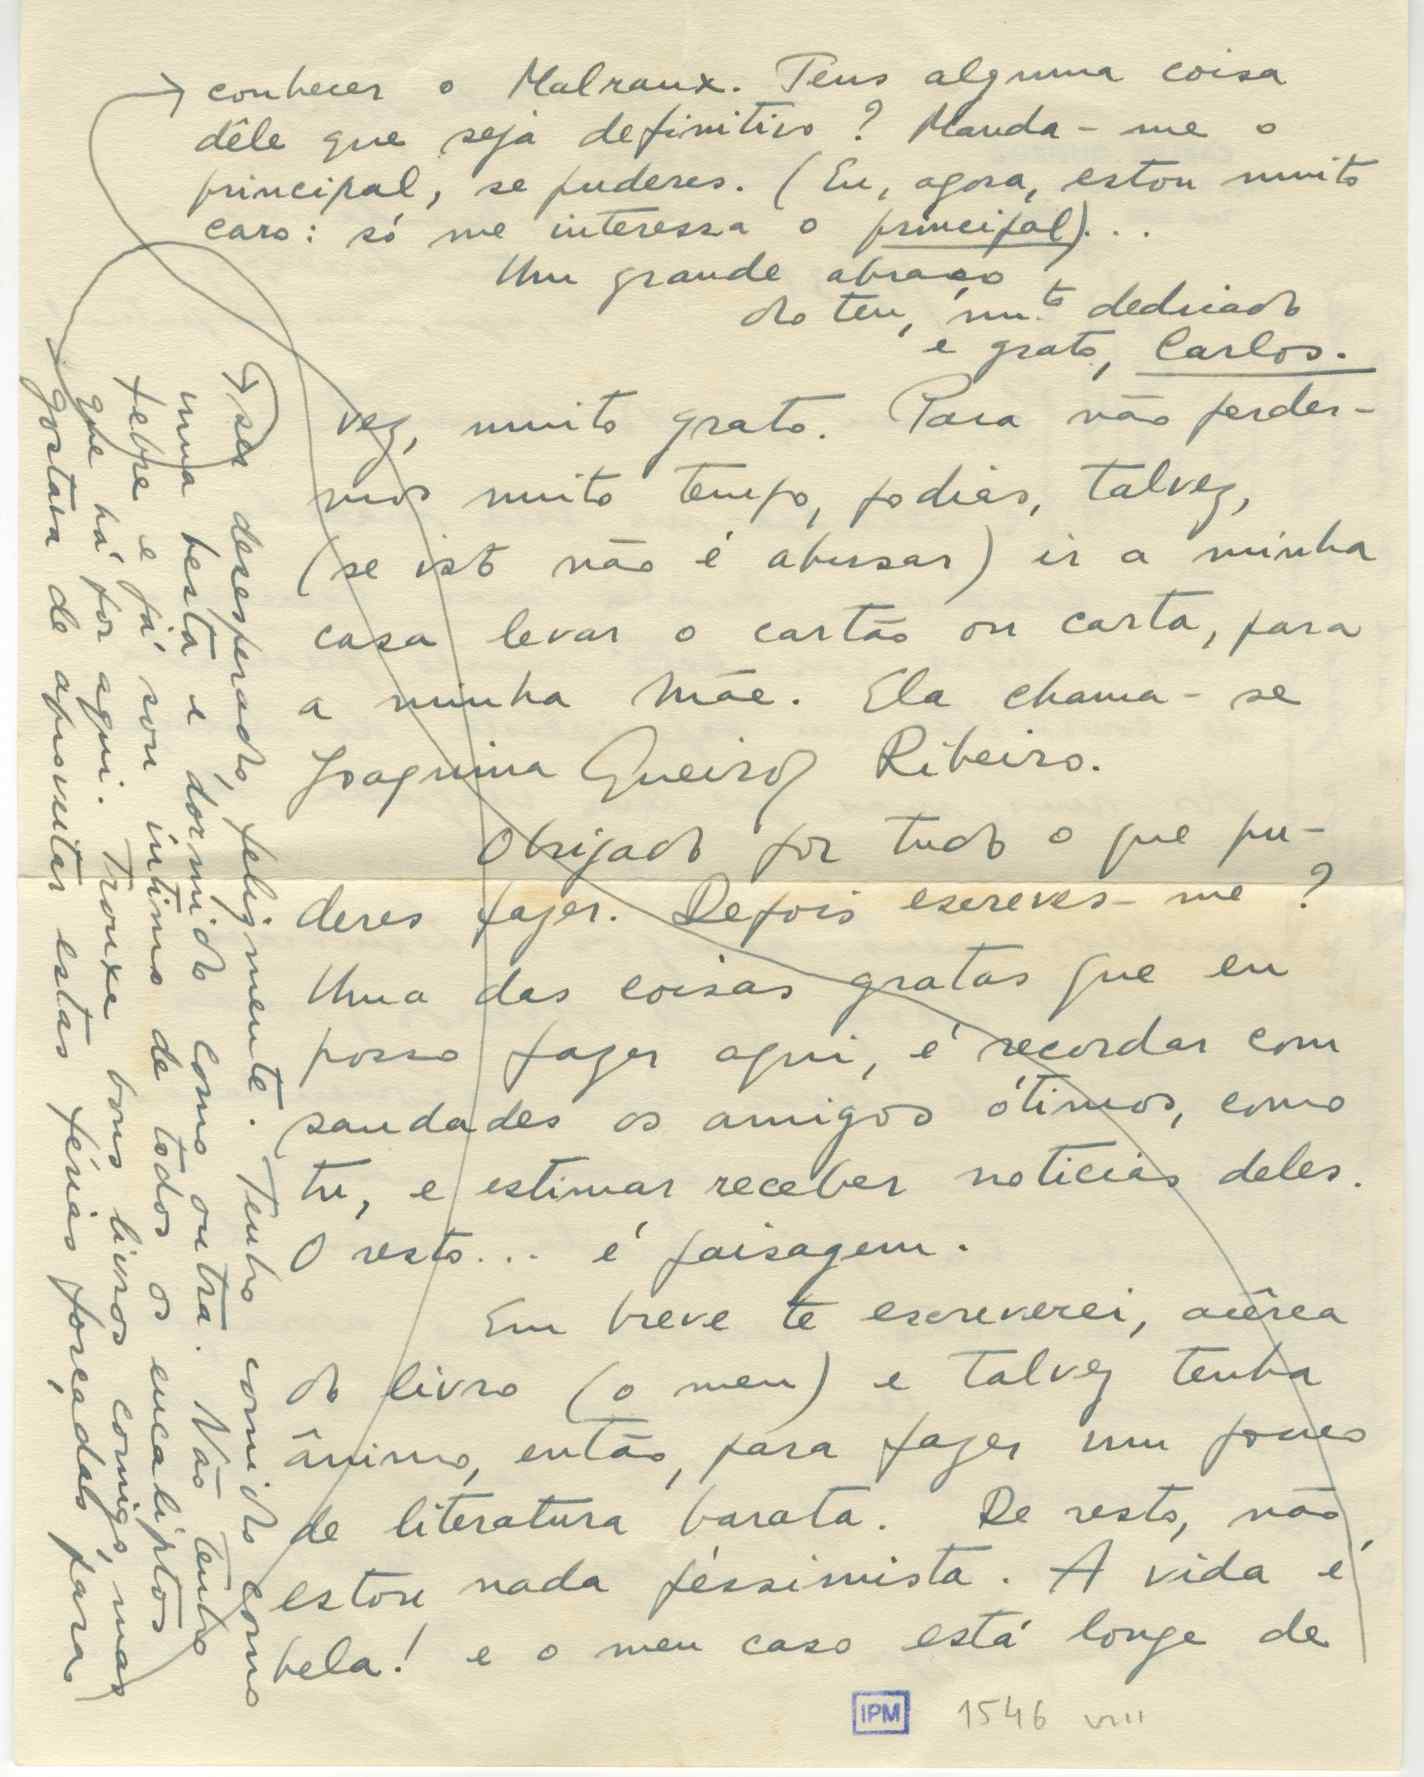 vez, muito grato. Para não perder-
mos muito tempo, podias, talvez,
(se isto não é abusar) ir a minha
casa levar o cartão ou carta, para
a minha Mãe. Ela chama-se
Joaquina Queiroz Ribeiro.
Obrigado por tudo o que pu-
deres fazer. Depois escreves-me?
Uma das coisas gratas que eu
posso fazer aqui, é recordar com
saudades os amigos ótimos, como
tu, e estimar receber noticias deles.
O resto... é paisagem.
Em breve te escreverei, acêrca
do livro (o meu) e talvez tenha
ânimo, então, para fazer um pouco
de literatura barata. De resto, não
estou nada péssimista. A vida é
bela! e o meu caso está longe de
ser desesperado, felizmente. Tenho comido como
uma besta e dormido como outra. Não tenho
febre e já sou intimo de todos os eucaliptos
que há por aqui. Trouxe bons livros comigo, mas
gostava de aproveitar estas férias forçadas, para
conhecer o Malraux. Tens alguma coisa
dêle que seja definitivo? Manda-me o
principal, se puderes. (Eu, agora, estou muito
caro: só me interessa o principal)...
Um grande abraço
do teu, mu.to dedicado
e grato, Carlos.
IPM 1546 VIII